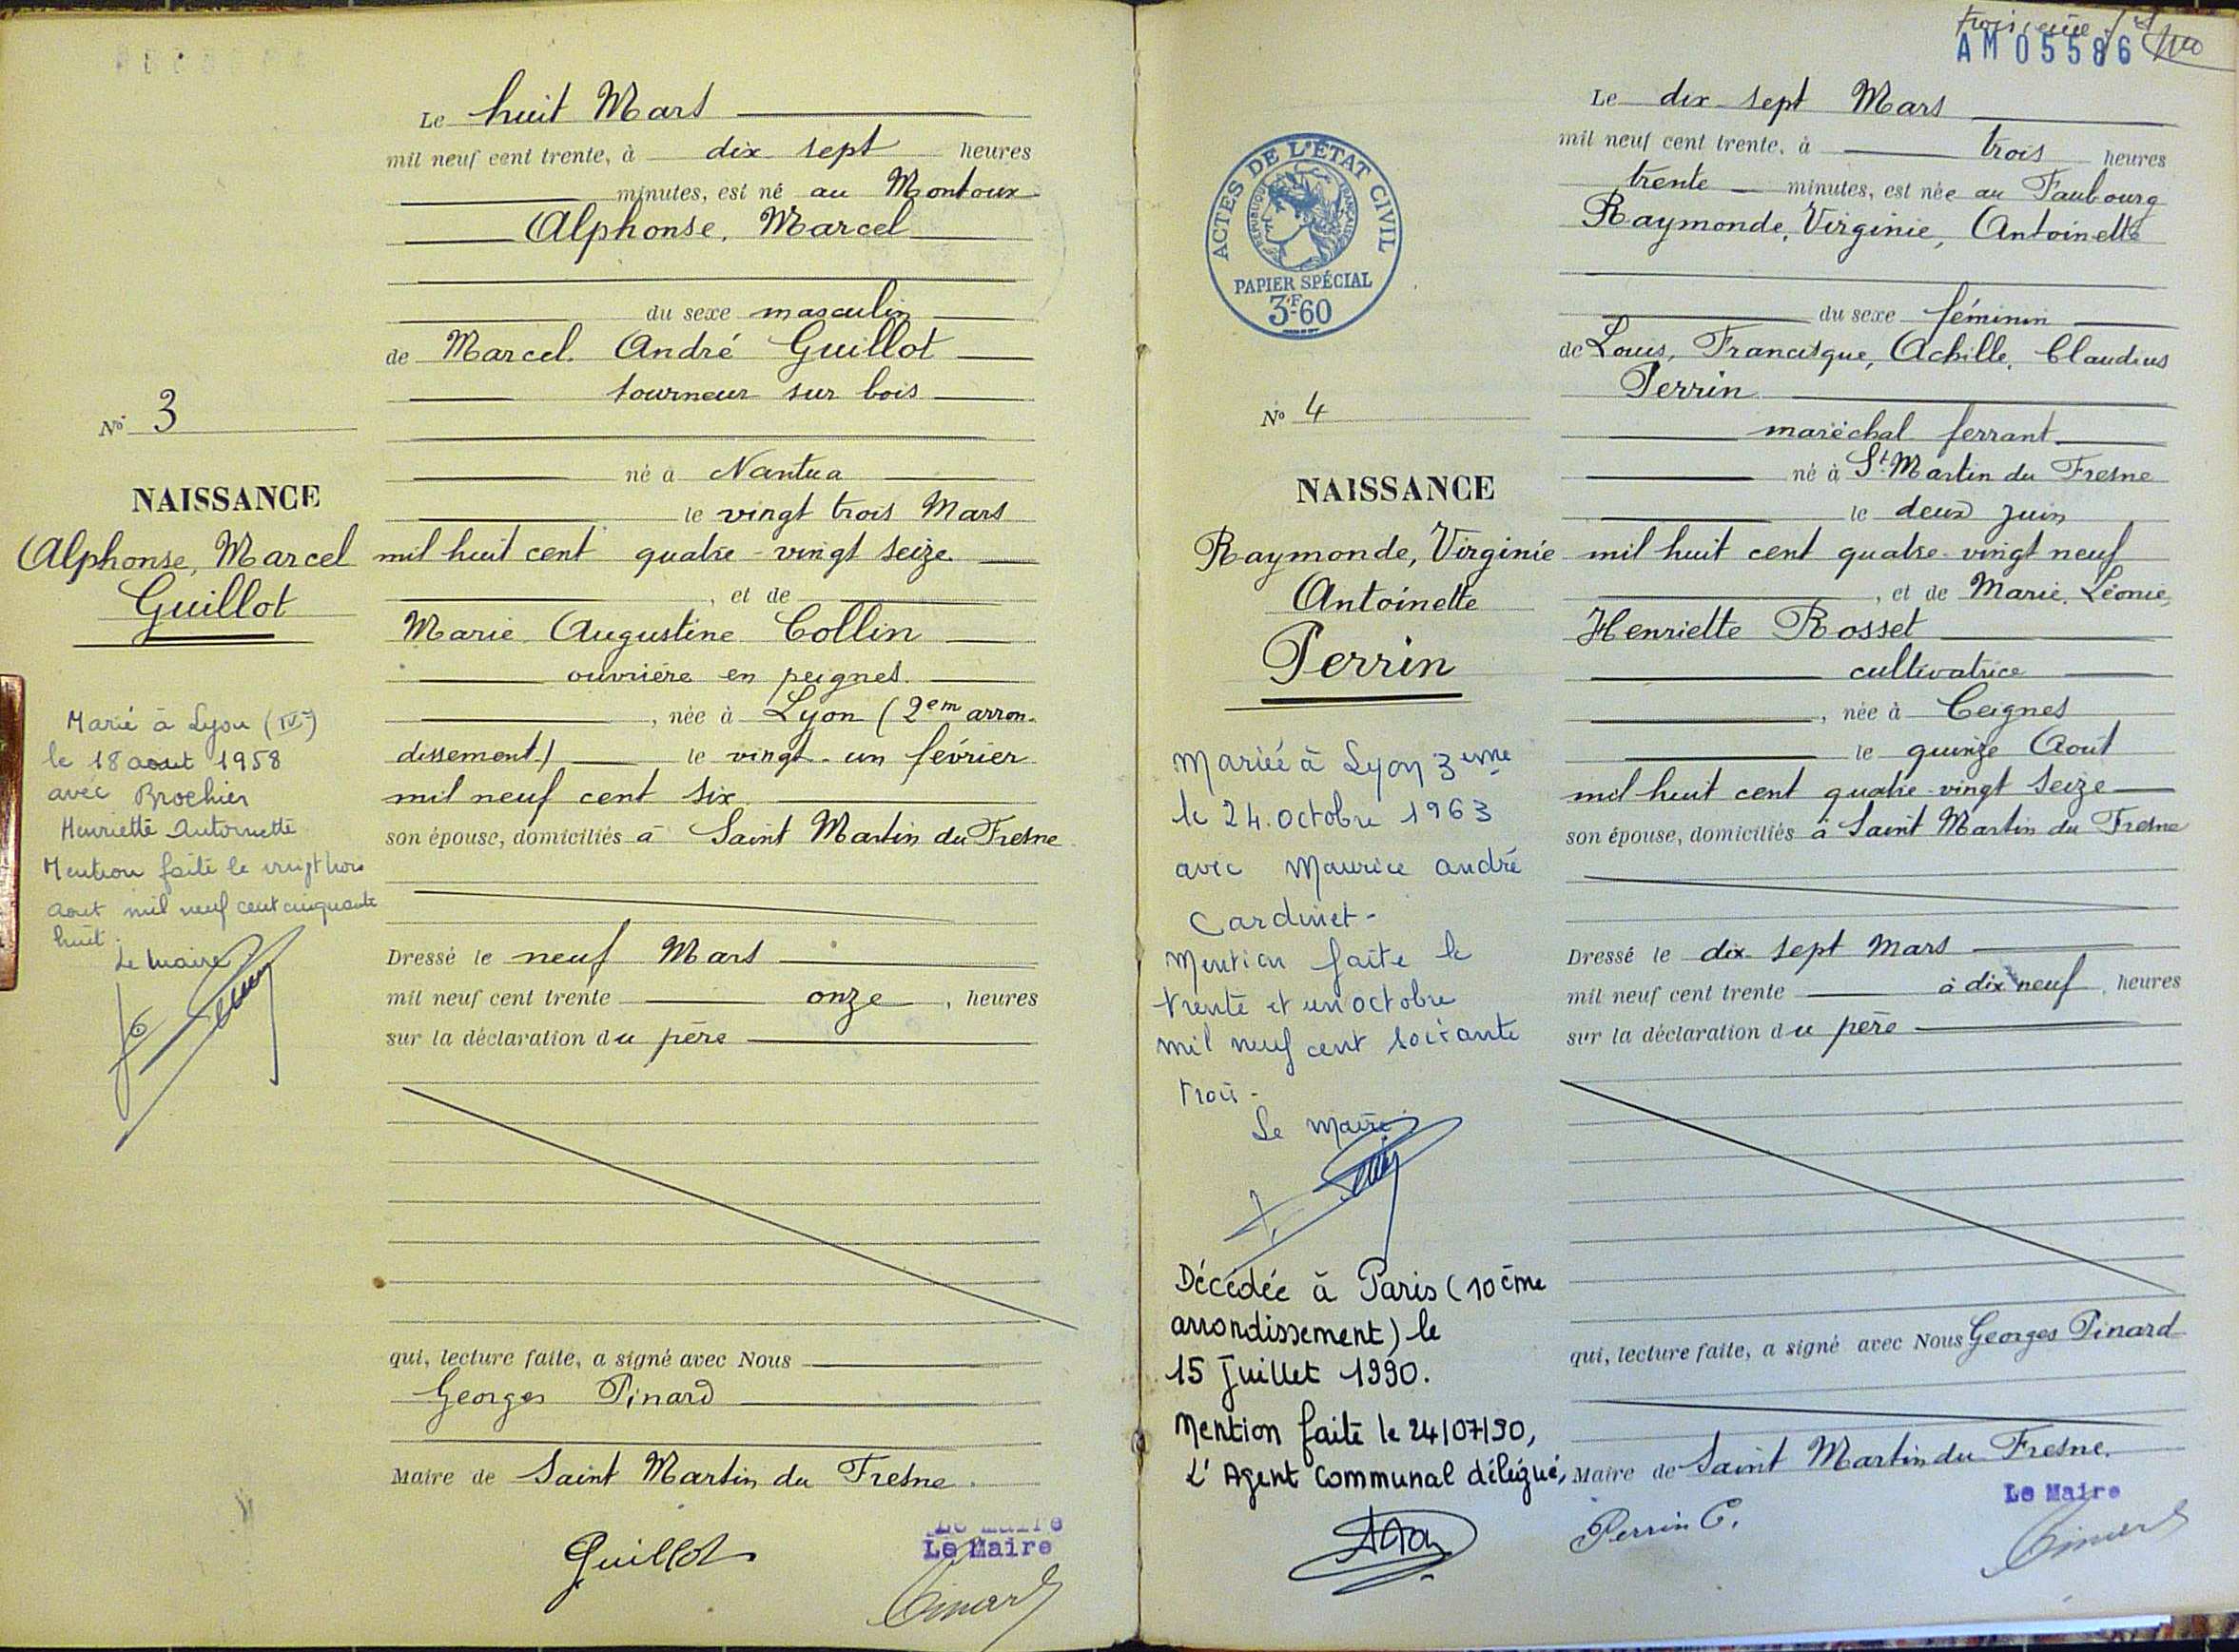 Le huit Mars
mil neuf cent trente, à dix sept heures
minutes, est né au Montoux
Alphonse, Marcel
du sexe masculin
de Marcel André Guillot
tourneur sur bois
né à Nantua
le vingt trois Mars
mil huit cent quatre-vingt seize
, et de
Marie Augustine Collin
ouvrière en peignes.
, née à Lyon (2em arron-
dissement) le vingt-un février
mil neuf cent six
son épouse, domiciliés à Saint Martin du Fresne
Dressé le neuf Mars
mil neuf cent trente onze, heures
sur la déclaration du père
qui, lecture faite, a signé avec Nous
Georges Pinard
Maire de Saint Martin du Fresne.
Guillot
Le Maire
Le Maire
No 3
NAISSANCE
Alphonse, Marcel
Guillot
Marié à Lyon
le 18 aout 1958
avec Brochier
Henriette Antoinette
Mention faite le vingt trois
aout mil neuf cent cinquante
huit.
Le Maire
AM 05586
ACTES DE L'ÉTAT CIVIL
RÉPUBLIQUE FRANÇAISE
PAPIER SPÉCIAL
3F60
No 4
NAISSANCE
Raymonde, Virginie
Antoinette
Perrin
Mariée à Lyon 3eme
le 24 octobre 1963
avec Maurice André
Cardinet-
Mention faite le
trente et un octobre
mil neuf cent soixante
trois-
Le Maire
Décédée à Paris (10ème
arrondissement) le
15 Juillet 1990.
Mention faite le 24/07/90,
L'Agent Communal délégué,
Le dix-sept Mars
mil neuf cent trente, à trois heures
trente minutes, est née au Faubourg
Raymonde, Virginie, Antoinette
du sexe féminin
de Louis, Francisque, Achille, Claudius
Perrin
maréchal ferrant
né à St Martin du Fresne
le deux juin
mil huit cent quatre-vingt neuf
, et de Marie, Léonie,
Henriette Rosset
cultivatrice
, née à Ceignes
le quinze Août
mil huit cent quatre-vingt seize
son épouse, domiciliés à Saint Martin du Fresne
Dressé le dix sept Mars
mil neuf cent trente à dix neuf, heures
sur la déclaration du père
qui, lecture faite, a signé avec Nous Georges Pinard
Maire de Saint Martin du Fresne.
Le Maire
Perrin C.